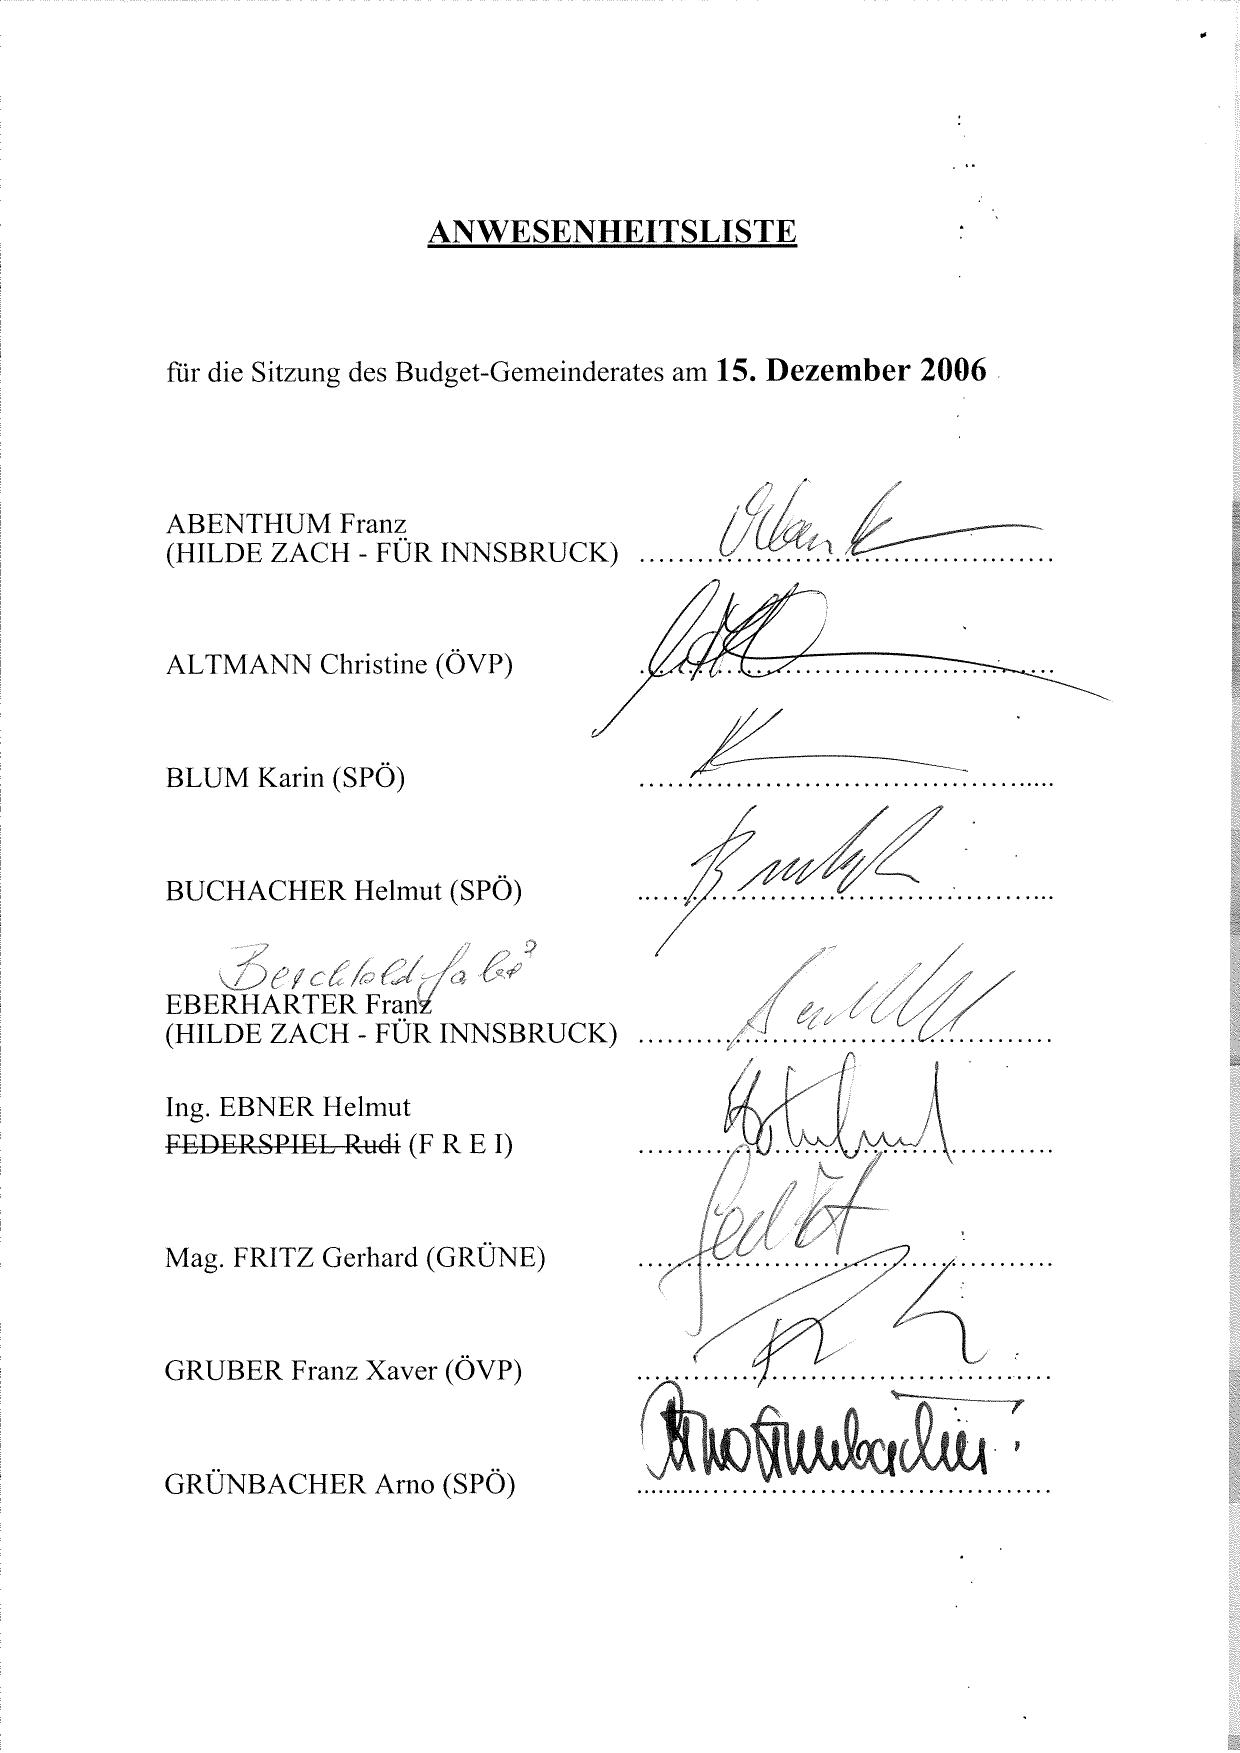 ANWESENHEITSLISTE
für die Sitzung des Budget-Gemeinderates am 15. Dezember 2006
ABENTHUM Franz
(HILDE ZACH - FÜR INNSBRUCK) ..........................................
ALTMANN Christine (ÖVP) ..........................................
BLUM Karin (SPÖ) ..........................................
BUCHACHER Helmut (SPÖ) ..........................................
EBERHARTER Franz
(HILDE ZACH - FÜR INNSBRUCK) ..........................................
Ing. EBNER Helmut
FEDERSPIEL Rudi (F R E I) ..........................................
Mag. FRITZ Gerhard (GRÜNE) ..........................................
GRUBER Franz Xaver (ÖVP) ..........................................
Arno Grünbacher
GRÜNBACHER Arno (SPÖ) ..........................................